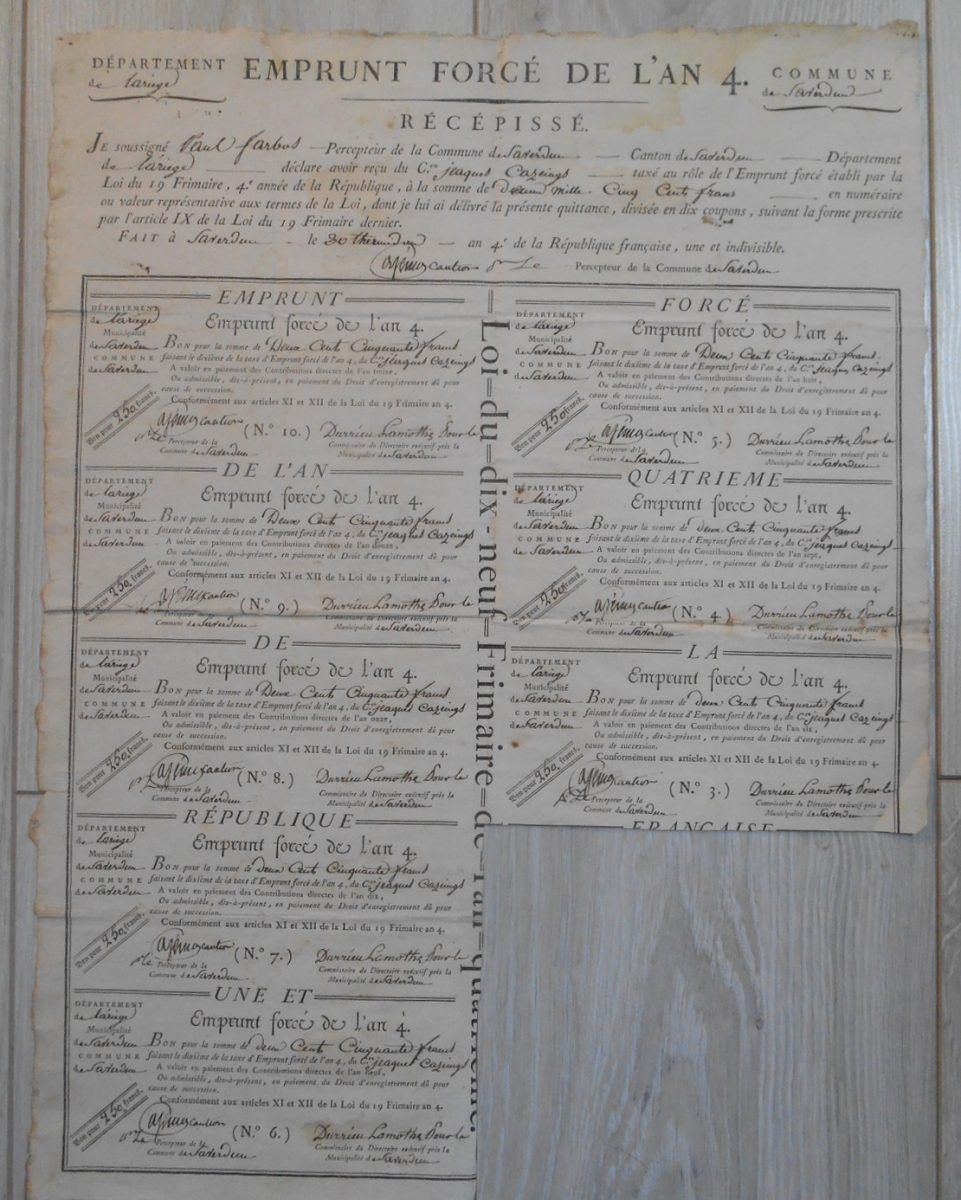 DÉPARTEMENT
de Lariege
EMPRUNT FORCÉ DE L'AN 4.
COMMUNE
de Saverdun
RÉCÉPISSÉ.
JE soussigné Paul Percepteur de la Commune de Saverdun Canton de Saverdun Département
de Lariege déclare avoir reçu du C.en Jeaques Cazeings taxé au rôle de l'Emprunt forcé établi par la
Loi du 19 Frimaire, 4.e année de la République, à la somme de Deux mille Cinq Cent frans en numéraire
ou valeur représentative aux termes de la Loi, dont je lui ai délivré la présente quittance, divisée en dix coupons, suivant la forme prescrite
par l'article IX de la Loi du 19 Frimaire dernier.
FAIT à Saverdun le 30 thermidor an 4.e de la République française, une et indivisible.
caution Percepteur de la Commune de Saverdun
EMPRUNT
DÉPARTEMENT
de Lariege
Municipalité
de Saverdun
COMMUNE
de Saverdun
Emprunt forcé de l'an 4.
BON pour la somme de Deux Cent Cinquante frans
faisant le dixième de la taxe d'Emprunt forcé de l'an 4, du C.en Jeaques Cazeings
A valoir en paiement des Contributions directes de l'an treize,
Ou admissible, dis-à-présent, en paiement du Droit d'enregistrement dû pour
cause de succession.
Conformément aux articles XI et XII de la Loi du 19 Frimaire an 4.
Bon pour 250 francs.
caution (N.° 10.) Durrieu Lamothe Pour le
Percepteur de la
Commune de Saverdun
Commissaire du Directoire exécutif près la
Municipalité de Saverdun
DE L'AN
DÉPARTEMENT
de Lariege
Municipalité
de Saverdun
COMMUNE
de Saverdun
Emprunt forcé de l'an 4.
BON pour la somme de Deux Cent Cinquante frans
faisant le dixième de la taxe d'Emprunt forcé de l'an 4, du C.en Jeaques Cazeings
A valoir en paiement des Contributions directes de l'an douze,
Ou admissible, dis-à-présent, en paiement du Droit d'enregistrement dû pour
cause de succession.
Conformément aux articles XI et XII de la Loi du 19 Frimaire an 4.
Bon pour 250 francs.
caution (N.° 9.) Durrieu Lamothe Pour le
Percepteur de la
Commune de Saverdun
Commissaire du Directoire exécutif près la
Municipalité de Saverdun
DE
DÉPARTEMENT
de Lariege
Municipalité
de Saverdun
COMMUNE
de Saverdun
Emprunt forcé de l'an 4.
BON pour la somme de Deux Cent Cinquante frans
faisant le dixième de la taxe d'Emprunt forcé de l'an 4, du C.en Jeaques Cazeings
A valoir en paiement des Contributions directes de l'an onze,
Ou admissible, dis-à-présent, en paiement du Droit d'enregistrement dû pour
cause de succession.
Conformément aux articles XI et XII de la Loi du 19 Frimaire an 4.
Bon pour 250 francs.
caution (N.° 8.) Durrieu Lamothe Pour le
Percepteur de la
Commune de Saverdun
Commissaire du Directoire exécutif près la
Municipalité de Saverdun
RÉPUBLIQUE
DÉPARTEMENT
de Lariege
Municipalité
de Saverdun
COMMUNE
de Saverdun
Emprunt forcé de l'an 4.
BON pour la somme de Deux Cent Cinquante frans
faisant le dixième de la taxe d'Emprunt forcé de l'an 4, du C.en Jeaques Cazeings
A valoir en paiement des Contributions directes de l'an dix,
Ou admissible, dis-à-présent, en paiement du Droit d'enregistrement dû pour
cause de succession.
Conformément aux articles XI et XII de la Loi du 19 Frimaire an 4.
Bon pour 250 francs.
caution (N.° 7.) Durrieu Lamothe Pour le
Percepteur de la
Commune de Saverdun
Commissaire du Directoire exécutif près la
Municipalité de Saverdun
UNE ET
DÉPARTEMENT
de Lariege
Municipalité
de Saverdun
COMMUNE
de Saverdun
Emprunt forcé de l'an 4.
BON pour la somme de deux Cent Cinquante frans
faisant le dixième de la taxe d'Emprunt forcé de l'an 4, du C.en Jeaques Cazeings
A valoir en paiement des Contributions directes de l'an neuf,
Ou admissible, dis-à-présent, en paiement du Droit d'enregistrement dû pour
cause de succession.
Conformément aux articles XI et XII de la Loi du 19 Frimaire an 4.
Bon pour 250 francs.
caution (N.° 6.) Durrieu Lamothe Pour le
Percepteur de la
Commune de Saverdun
Commissaire du Directoire exécutif près la
Municipalité de Saverdun
Loi du dix-neuf Frimaire de l'an quatrième.
FORCÉ
DÉPARTEMENT
de Lariege
Municipalité
de Saverdun
COMMUNE
de Saverdun
Emprunt forcé de l'an 4.
BON pour la somme de Deux Cent Cinquante frans
faisant le dixième de la taxe d'Emprunt forcé de l'an 4, du C.en Jeaques Cazeings
A valoir en paiement des Contributions directes de l'an huit,
Ou admissible, dis-à-présent, en paiement du Droit d'enregistrement dû pour
cause de succession.
Conformément aux articles XI et XII de la Loi du 19 Frimaire an 4.
Bon pour 250 francs.
caution (N.° 5.) Durrieu Lamothe Pour le
Percepteur de la
Commune de Saverdun
Commissaire du Directoire exécutif près la
Municipalité de Saverdun
QUATRIEME
DÉPARTEMENT
de Lariege
Municipalité
de Saverdun
COMMUNE
de Saverdun
Emprunt forcé de l'an 4.
BON pour la somme de deux Cent Cinquante frans
faisant le dixième de la taxe d'Emprunt forcé de l'an 4, du C.en Jeaques Cazeings
A valoir en paiement des Contributions directes de l'an sept,
Ou admissible, dis-à-présent, en paiement du Droit d'enregistrement dû pour
cause de succession.
Conformément aux articles XI et XII de la Loi du 19 Frimaire an 4.
Bon pour 250 francs.
caution (N.° 4.) Durrieu Lamothe Pour le
Percepteur de la
Commune de Saverdun
Commissaire du Directoire exécutif près la
Municipalité de Saverdun
LA
DÉPARTEMENT
de Lariege
Municipalité
de Saverdun
COMMUNE
de Saverdun
Emprunt forcé de l'an 4.
BON pour la somme de deux Cent Cinquante frans
faisant le dixième de la taxe d'Emprunt forcé de l'an 4, du C.en Jeaques Cazeings
A valoir en paiement des Contributions directes de l'an six,
Ou admissible, dis-à-présent, en paiement du Droit d'enregistrement dû pour
cause de succession.
Conformément aux articles XI et XII de la Loi du 19 Frimaire an 4.
Bon pour 250 francs.
caution (N.° 3.) Durrieu Lamothe Pour le
Percepteur de la
Commune de Saverdun
Commissaire du Directoire exécutif près la
Municipalité de Saverdun
FRANÇAISE